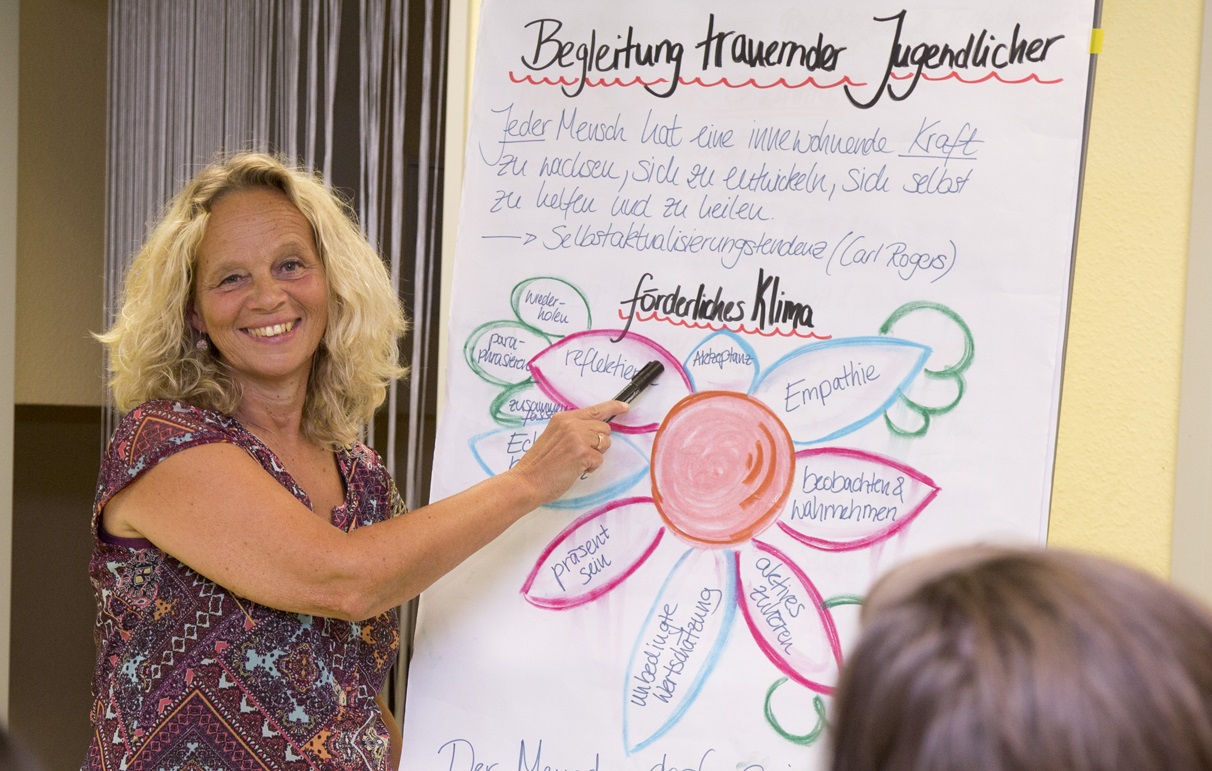 Begleitung trauernder Jugendlicher
Jeder Mensch hat eine innewohnende Kraft
zu wachsen, sich zu entwickeln, sich selbst
zu helfen und zu heilen.
→ Selbstaktualisierungstendenz (Carl Rogers)
förderliches Klima
wieder-
holen
para-
phrasieren
zusammen
fassen
reflektier
Akzeptanz
Empathie
Ec
beobachten &
wahrnehmen
präsent
sein
unbedingte
Wertschätzung
aktives
zuhören
Der Mensch darf